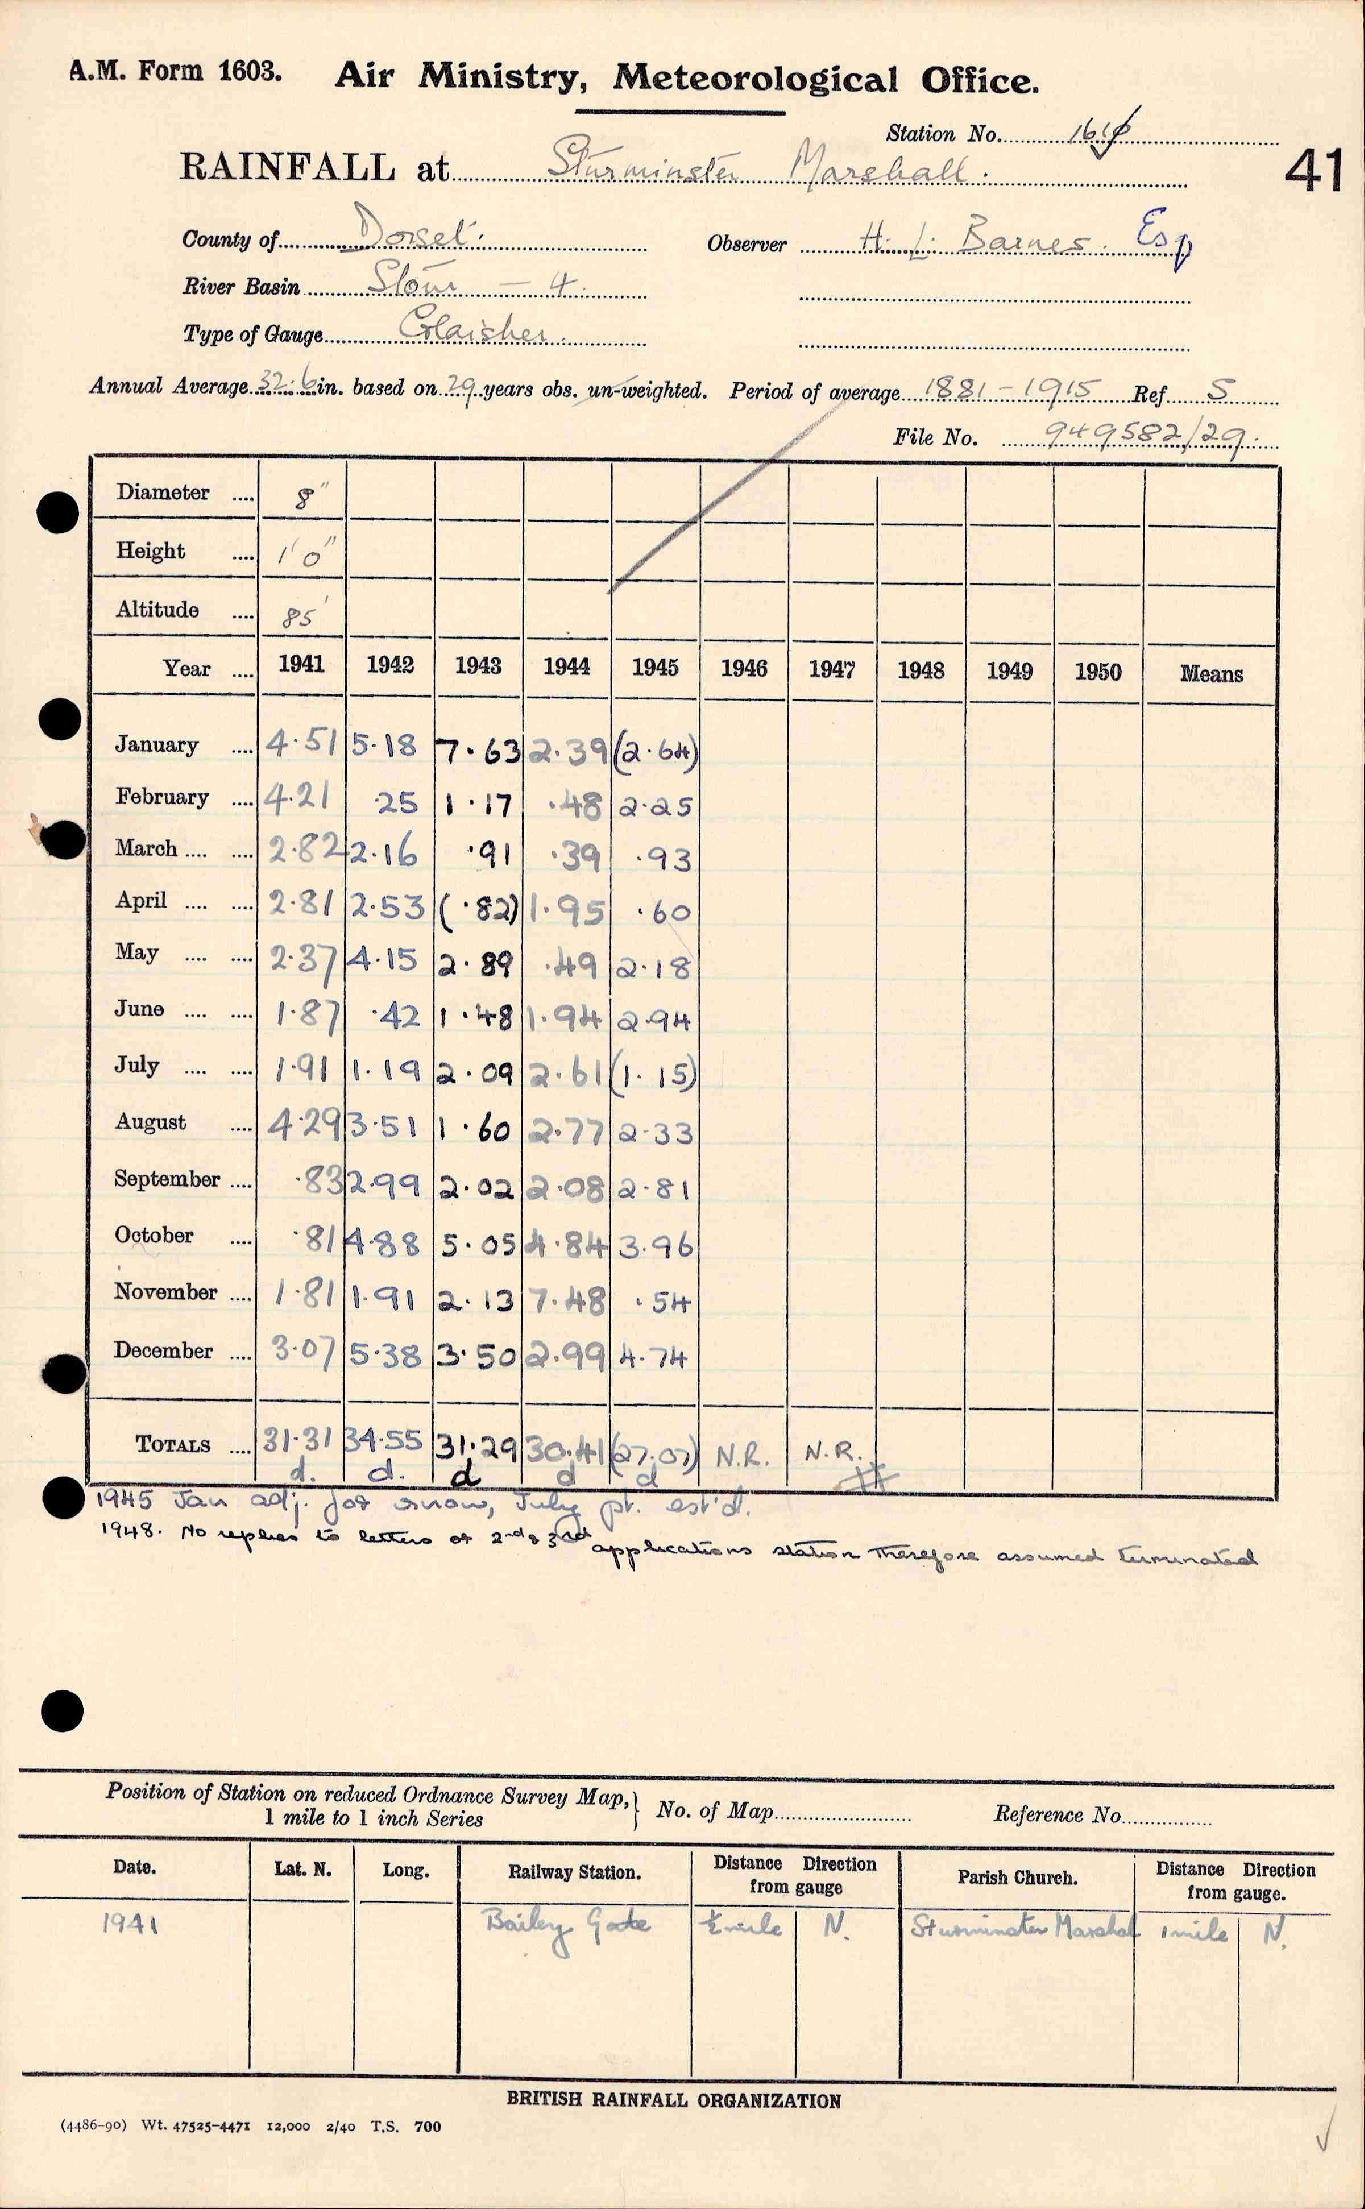 A.M. Form 1603. Air Ministry, Meteorological Office.
Station No.
RAINFALL at Sturminster Marshall. 41
County of Dorset. Observer H. L. Barnes. Esq
River Basin Stour — 4.
Type of Gauge Glaisher.
Annual Average 32.6 in. based on 29 years obs. un-weighted. Period of average 1881-1915 Ref S
File No. 949582/29.
Diameter .... 8"
Height .... 1'0"
Altitude .... 85'
Year .... 1941 1942 1943 1944 1945 1946 1947 1948 1949 1950 Means
January .... 4.51 5.18 7.63 2.39 (2.64)
February .... 4.21 .25 1.17 .48 2.25
March .... .... 2.82 2.16 .91 .39 .93
April .... .... 2.81 2.53 (.82) 1.95 .60
May .... .... 2.37 4.15 2.89 .49 2.18
June .... .... 1.87 .42 1.48 1.94 2.94
July .... .... 1.91 1.19 2.09 2.61 (1.15)
August .... 4.29 3.51 1.60 2.77 2.33
September .... .83 2.99 2.02 2.08 2.81
October .... .81 4.88 5.05 4.84 3.96
November .... 1.81 1.91 2.13 7.48 .54
December .... 3.07 5.38 3.50 2.99 4.74
TOTALS .... 31.31 34.55 31.29 30.41 (27.07) N.R. N.R.
d. d. d d d
1945 Jan adj. for snow, July pt. est'd.
1948. No replies to letters of 2nd & 3rd applications station therefore assumed terminated
Position of Station on reduced Ordnance Survey Map, } No. of Map Reference No.
1 mile to 1 inch Series
Date. Lat. N. Long. Railway Station. Distance Direction from gauge Parish Church. Distance Direction from gauge.
1941 Bailey Gate ½ mile N. Sturminster Marshal 1 mile N.
BRITISH RAINFALL ORGANIZATION
(4486-90) Wt. 47525-4471 12,000 2/40 T.S. 700